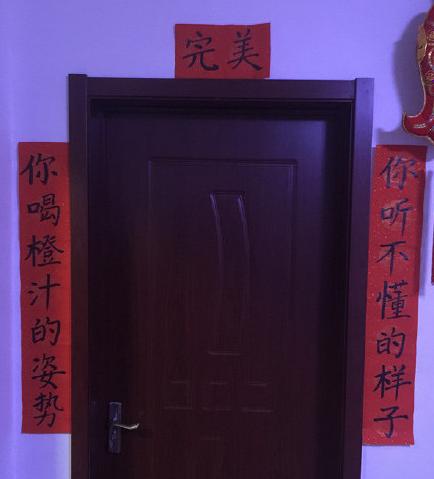 完美
你听不懂的样子
你喝橙汁的姿势